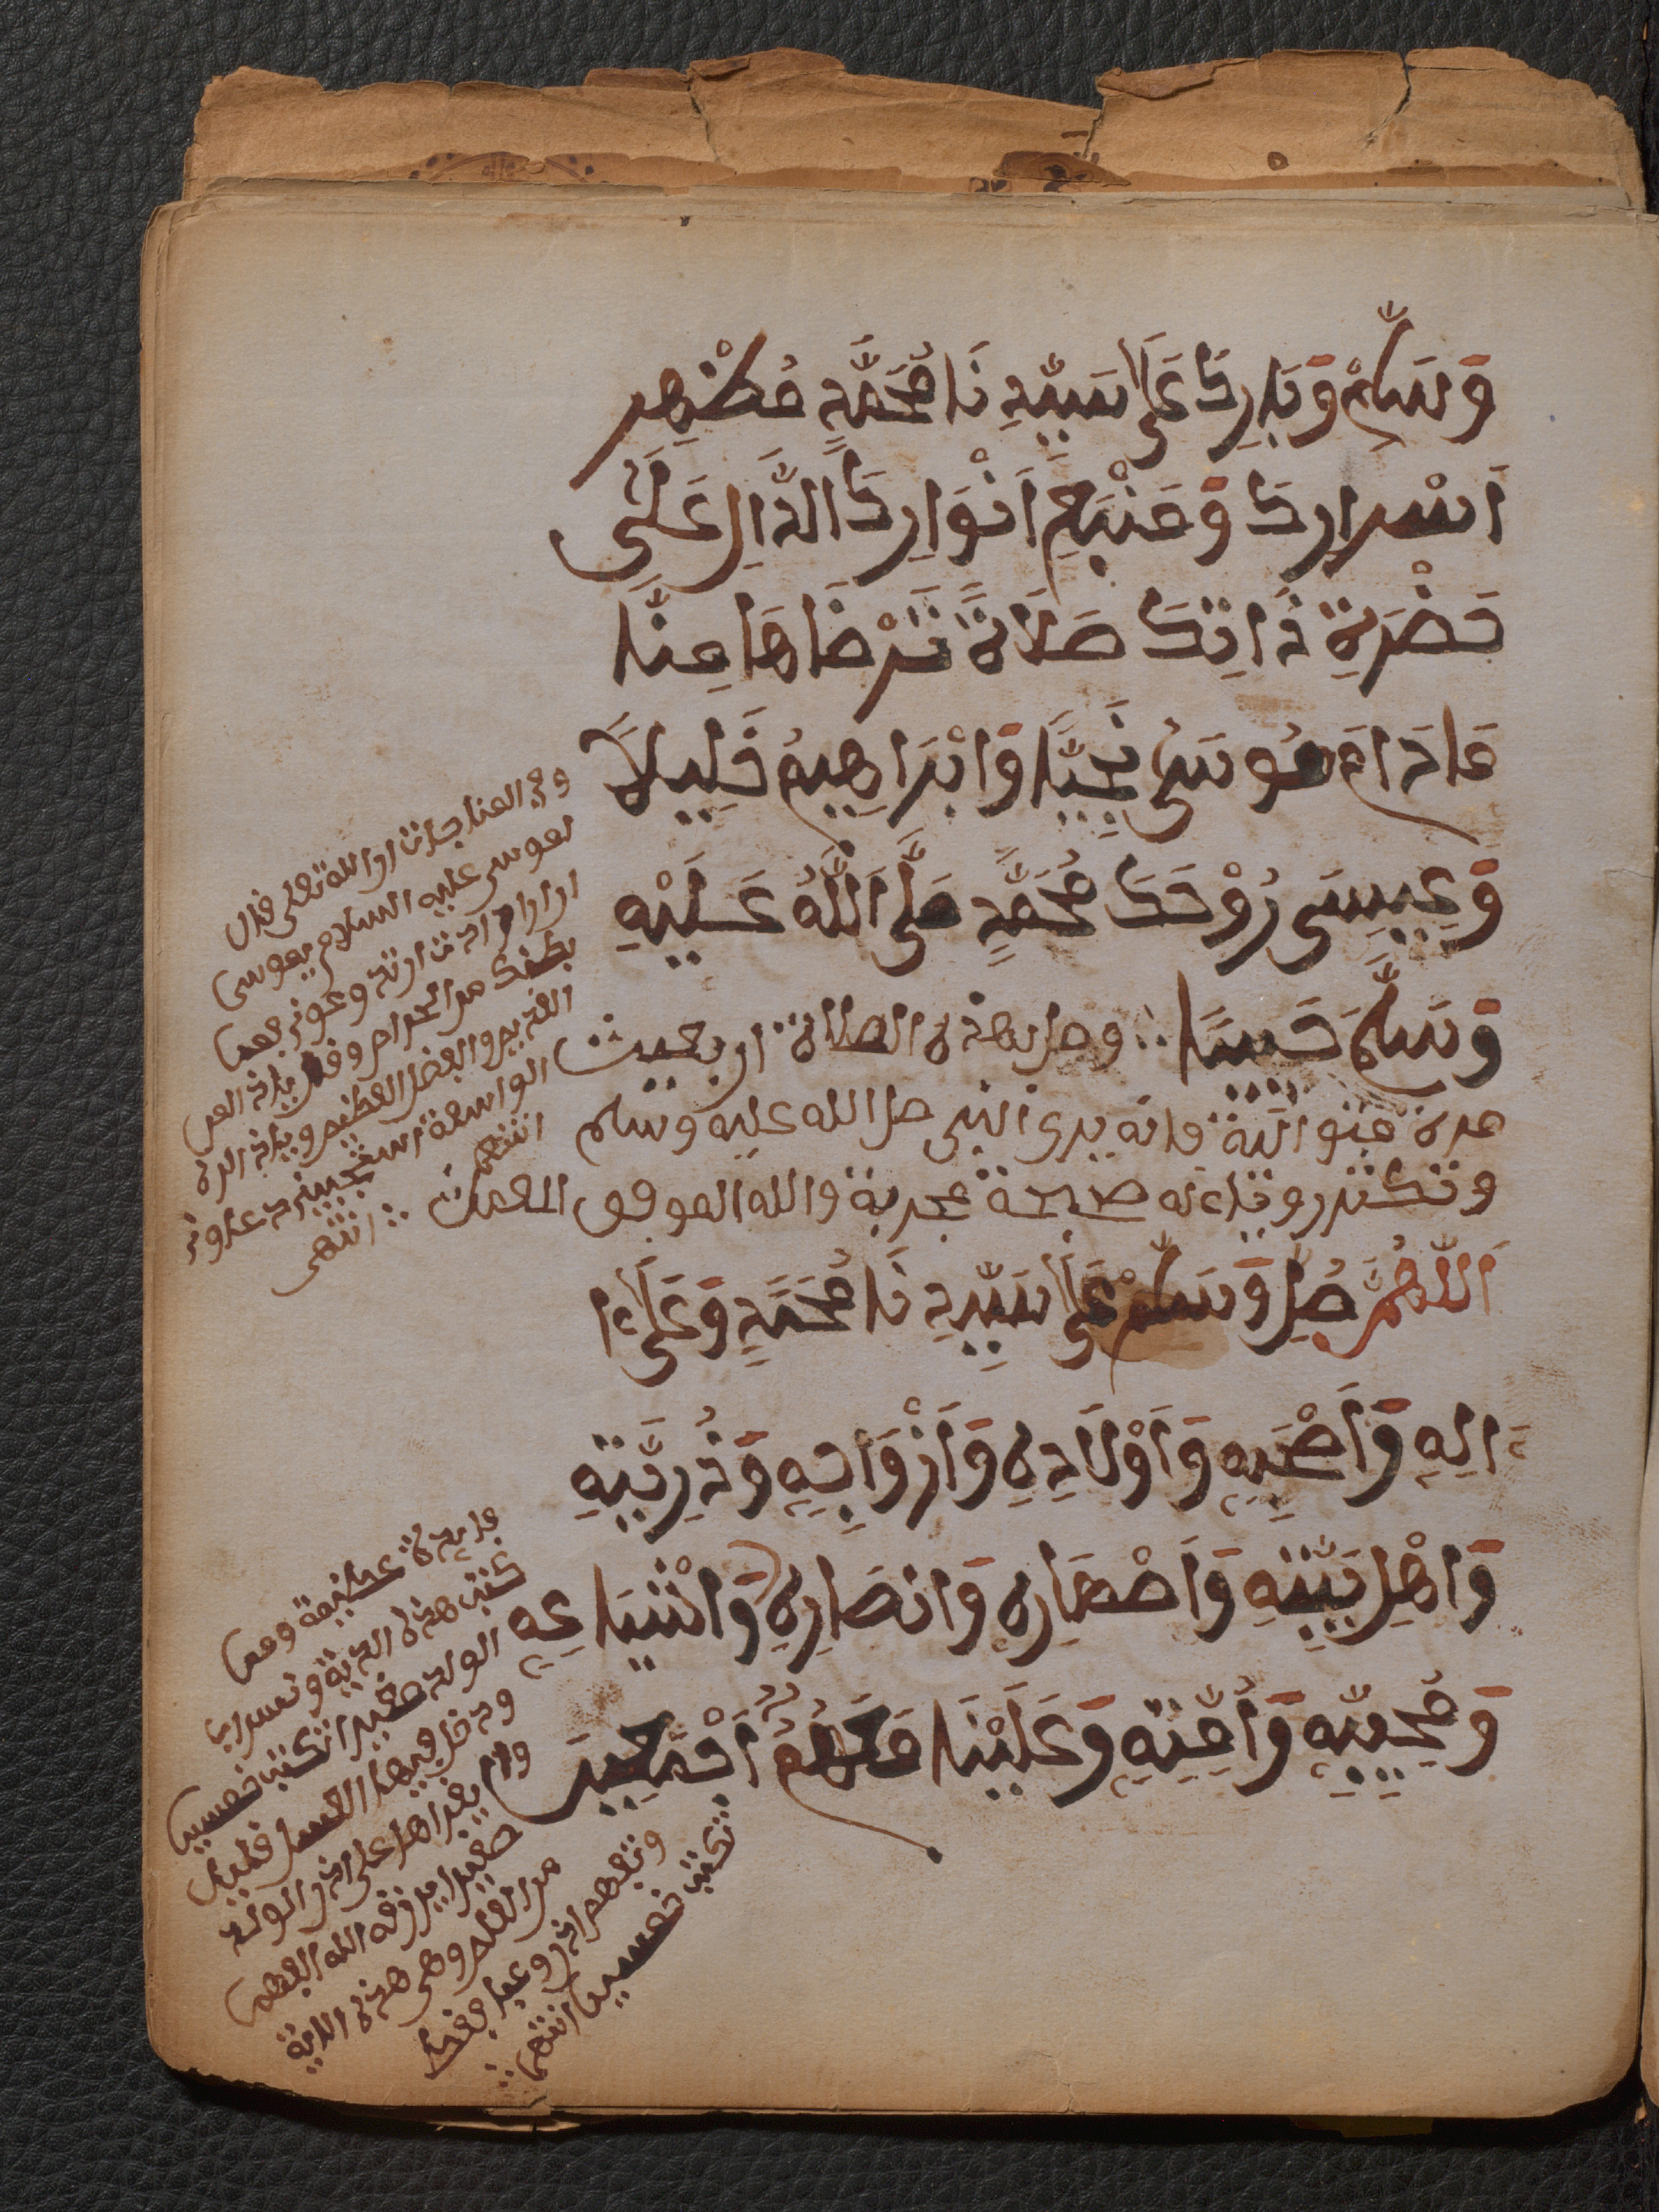 وَسَلِّمْ وَبَارِكْ عَلَىٰ سَيِّدِنَا مُحَمَّدٍ مُظْهِرِ
أَسْرَارِكَ وَمَنْبَعِ أَنْوَارِكَ الدَّالِ عَلَىٰ
حَضْرَةِ ذَاتِكَ صَلَاةً تَرْضَاهَا مِنَّا
مَا دَامَ مُوسَىٰ نَجِيًّا وَإِبْرَاهِيمُ خَلِيلاً
وَعِيسَى رُوْحَكَ مُحَمَّدٍ صَلَّى اللَّهُ عَلَيْهِ
وَسَلَّمَ حَبِيبًا ∴ وصل بهذه الصلاة اربعين
مرة متوالية فانه يرى النبي صلى الله عليه وسلم
وتكثر رويته له صحيحة مجربة والله الموفق المعين ∴ انتهى
اَللَّهُمَّ صَلِّ وَسَلِّمْ عَلَىٰ سَيِّدِنَا مُحَمَّدٍ وَعَلَىٰ ءا
ءَالِهِ وَأَصْحَبِهِ وَأَوْلَادِهِ وَأَزْوَاجِهِ وَذُرِّيَّتِهِ
وَاهْلِ بَيْتِهِ وَأَصْهَارِهِ وَانصَارِهِ وَاشْيَاعِهِ
وَمُحِبِّيهِ وَأُمَّتِهِ وَعَلَيْنَا مَعَهُمُ أَجْمَعِينَ
وفي المناجات ان الله تعلى قال
لموسى عليه السلام يموسى
ان اردت ان تدعوني
بطنك من الحرام وقل ياذا المن
القديم والفضل العظيم وياذا الرحمة
الواسعة استجيب دعاوني
انتهى
فايدة عظيمة
كتب هذه الاية
الولد صغيرا تكتب خمسين
ودخل فيها العسل
يقراها على الولد
صغيرا يرزقه الله الفهم
من العلم وهي هذه الاية
وتعيها اذن وعية
تكتب خمسين انتهى ∴